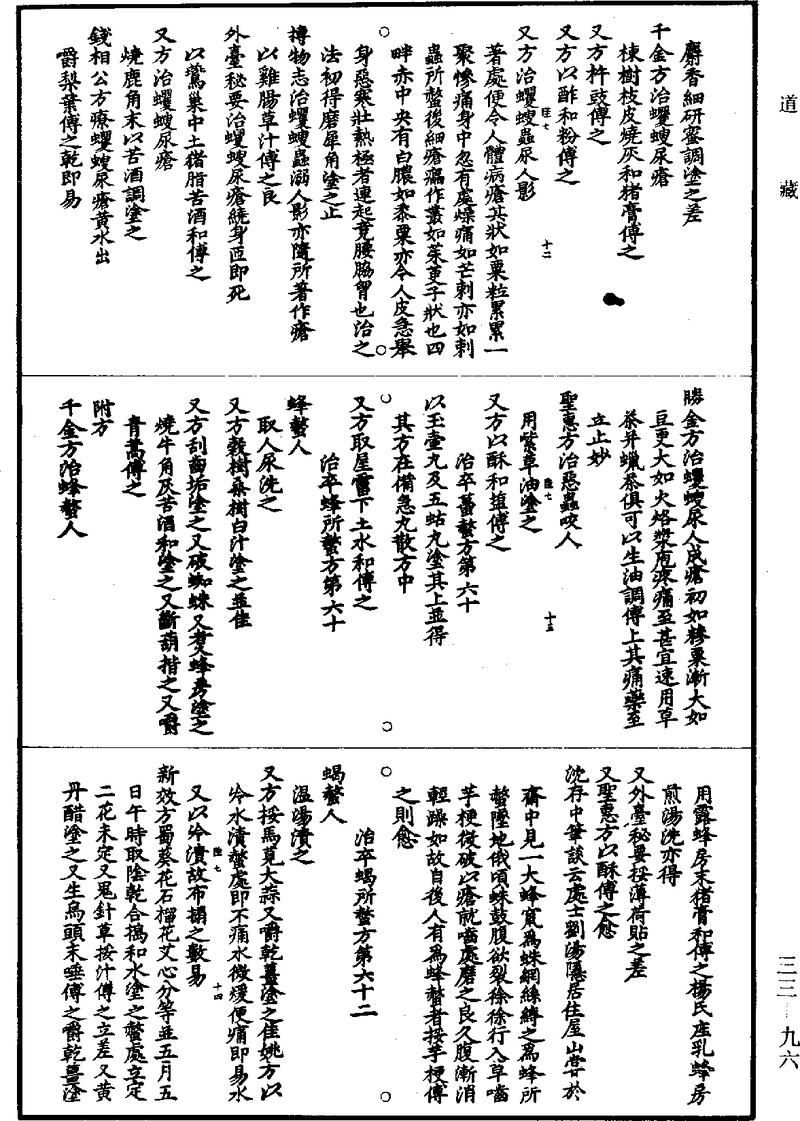 道藏
麝香細研蜜調塗之差
千金方治蠼螋尿瘡
楝樹枝皮燒灰和猪膏傅之
又方杵豉傅之
又方以酢和粉傅之
又方治蠼螋蟲尿人影
陸七 十二
著處便令人體病瘡其狀如粟粒累累一
聚慘痛身中忽有處燥痛如芒刺亦如刺
蟲所螫後細瘡瘺作叢如茱萸子狀也四
畔赤中央有白膿如黍粟亦令人皮急舉
身惡寒壯熱極者連起竟腰脇胷也治之
法初得磨犀角塗之止
博物志治蠼螋蟲溺人影亦隨所著作瘡
以雞腸草汁傅之良
外臺秘要治蠼螋尿瘡繞身匝即死
以鷰巢中土猪脂苦酒和傅之
又方治蠼螋尿瘡
燒鹿角末以苦酒調塗之
錢相公方療蠼螋尿瘡黄水出
嚼梨葉傅之乾即易
勝金方治蠼螋尿人成瘡初如糝粟漸大如
豆更大如火烙漿庖疼痛至甚宜速用草
茶并蠟茶俱可以生油調傅上其痛藥至
立止妙
聖惠方治惡蟲咬人
陸七 十三
用紫草油塗之
又方以酥和塩傅之
治卒蠆螫方第六十
以玉壷丸及五蛄丸塗其上並得
其方在備急丸散方中
又方取屋霤下土水和傅之
治卒蜂所螫方第六十
蜂螫人
取人尿洗之
又方穀樹桑樹白汁塗之並佳
又方刮齒垢塗之又破蜘蛛又煑蜂房塗之
燒牛角灰苦酒和塗之又斷葫揩之又嚼
青蒿傅之
附方
千金方治蜂螫人
用露蜂房末猪膏和傅之楊氏産乳蜂房
煎湯洗亦得
又外臺秘要挼薄荷貼之差
又聖惠方以酥傅之愈
沈存中筆談云處士劉湯隱居住屋山甞於
齋中見一大蜂窠爲蛛網絲縛之爲蜂所
螫墜地俄頃蛛鼓腹欲裂徐徐行入草嚙
芋梗後破以瘡就嚙處磨之良久腹漸消
輕躁如故自後人有爲蜂螫者挼芋梗傅
之則愈
治卒蝎所螫方第六十二
蝎螫人
温湯漬之
又方挼馬莧大蒜又嚼乾薑塗之佳姚方以
冷水漬螫處即不痛水微煖便痛即易水
陸七 十四
又以冷漬故布搨之數易
新效方蜀葵花石榴花艾心分等並五月五
日午時取陰乾合搗和水塗之螫處立定
二花未定又鬼針草挼汁傅之立差又黄
丹醋塗之又生烏頭末唾傅之嚼乾薑塗
三三—九六